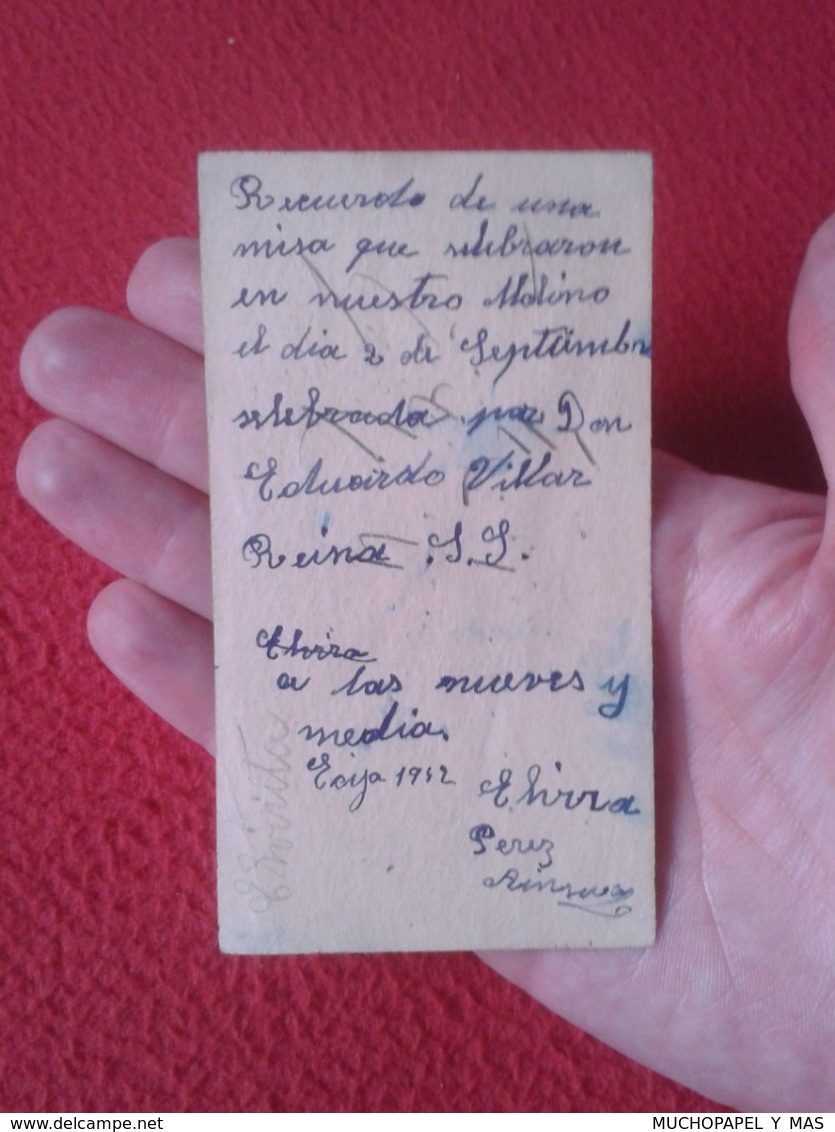 Recuerdo de una
misa que selebraron
en nuestro Molino
el dia 2 de Septiembre
selebrada por Don
Eduardo Villar
Reina .S.S.
Elvira
a las nueves y
media.
Ecija 1952 Elvira
Perez
Elvirita
delcampe.net
MUCHOPAPEL Y MAS